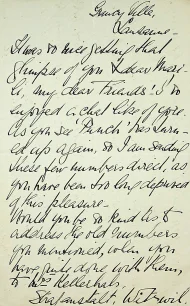 Lausanne
It was so nice getting that
glimpse of you & dear
my dear Friends! I so
enjoyed a chat like of yore.
As you see "Punch" has turn-
ed up again, so I am sending
these few numbers direct, as
you have been so long deprived
of this pleasure—
Would you be so kind as to
address the old numbers
you mentioned, when you
have quite done with them,
to Mrs